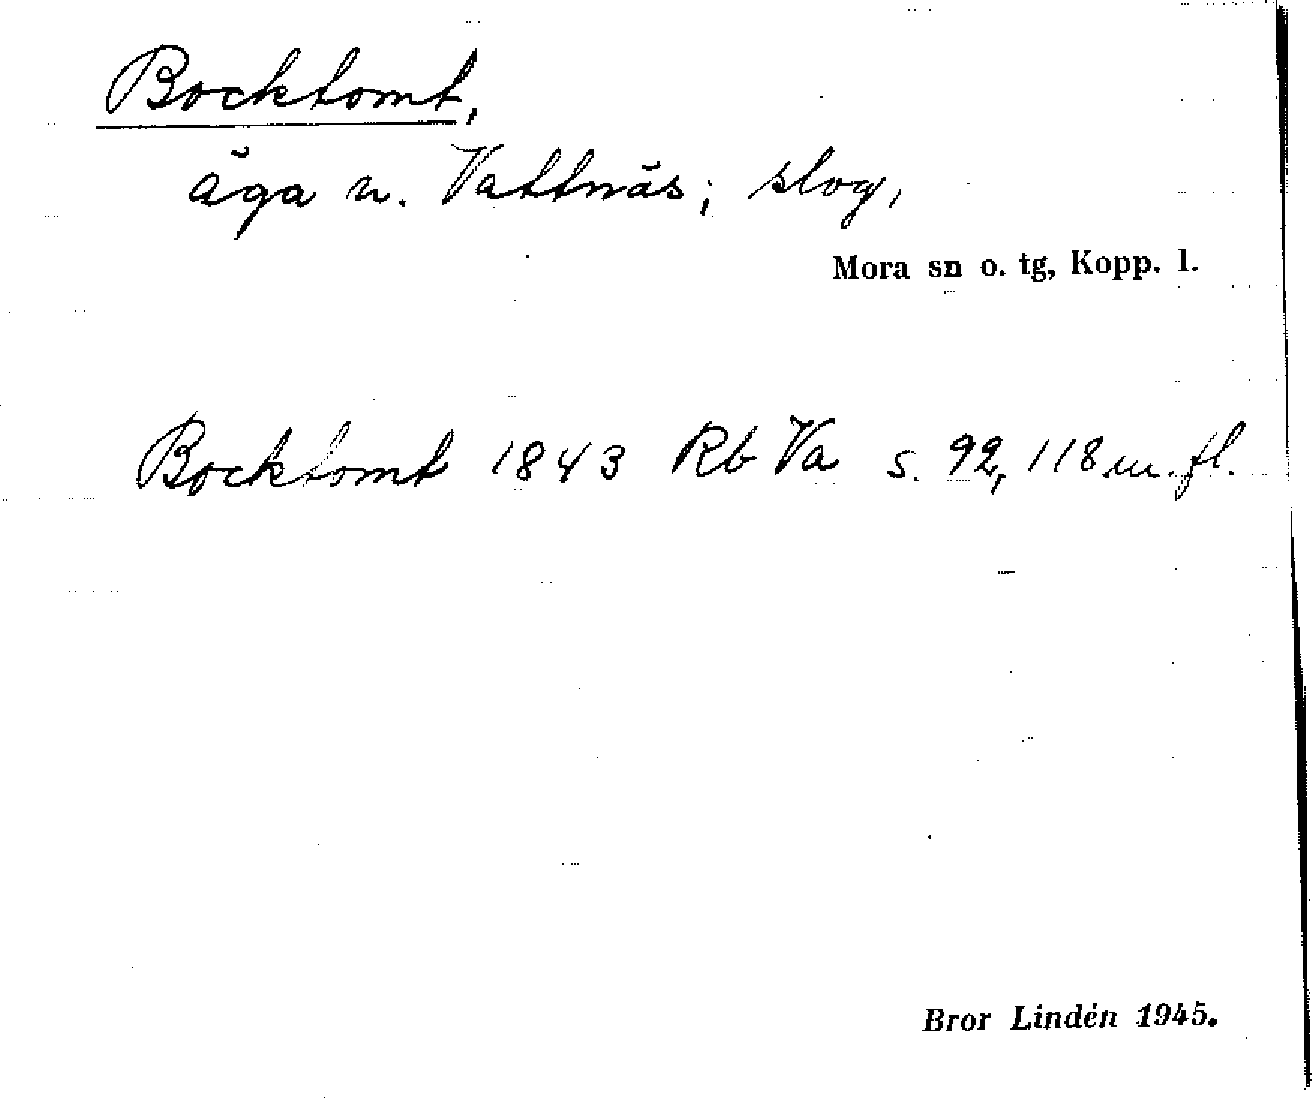 Bocktomt,
äga n. Vattnäs; slog,
Mora sn o. tg, Kopp. l.
Bocktomt 1843 Rb Va s. 92, 118 m. fl.
Bror Lindén 1945.